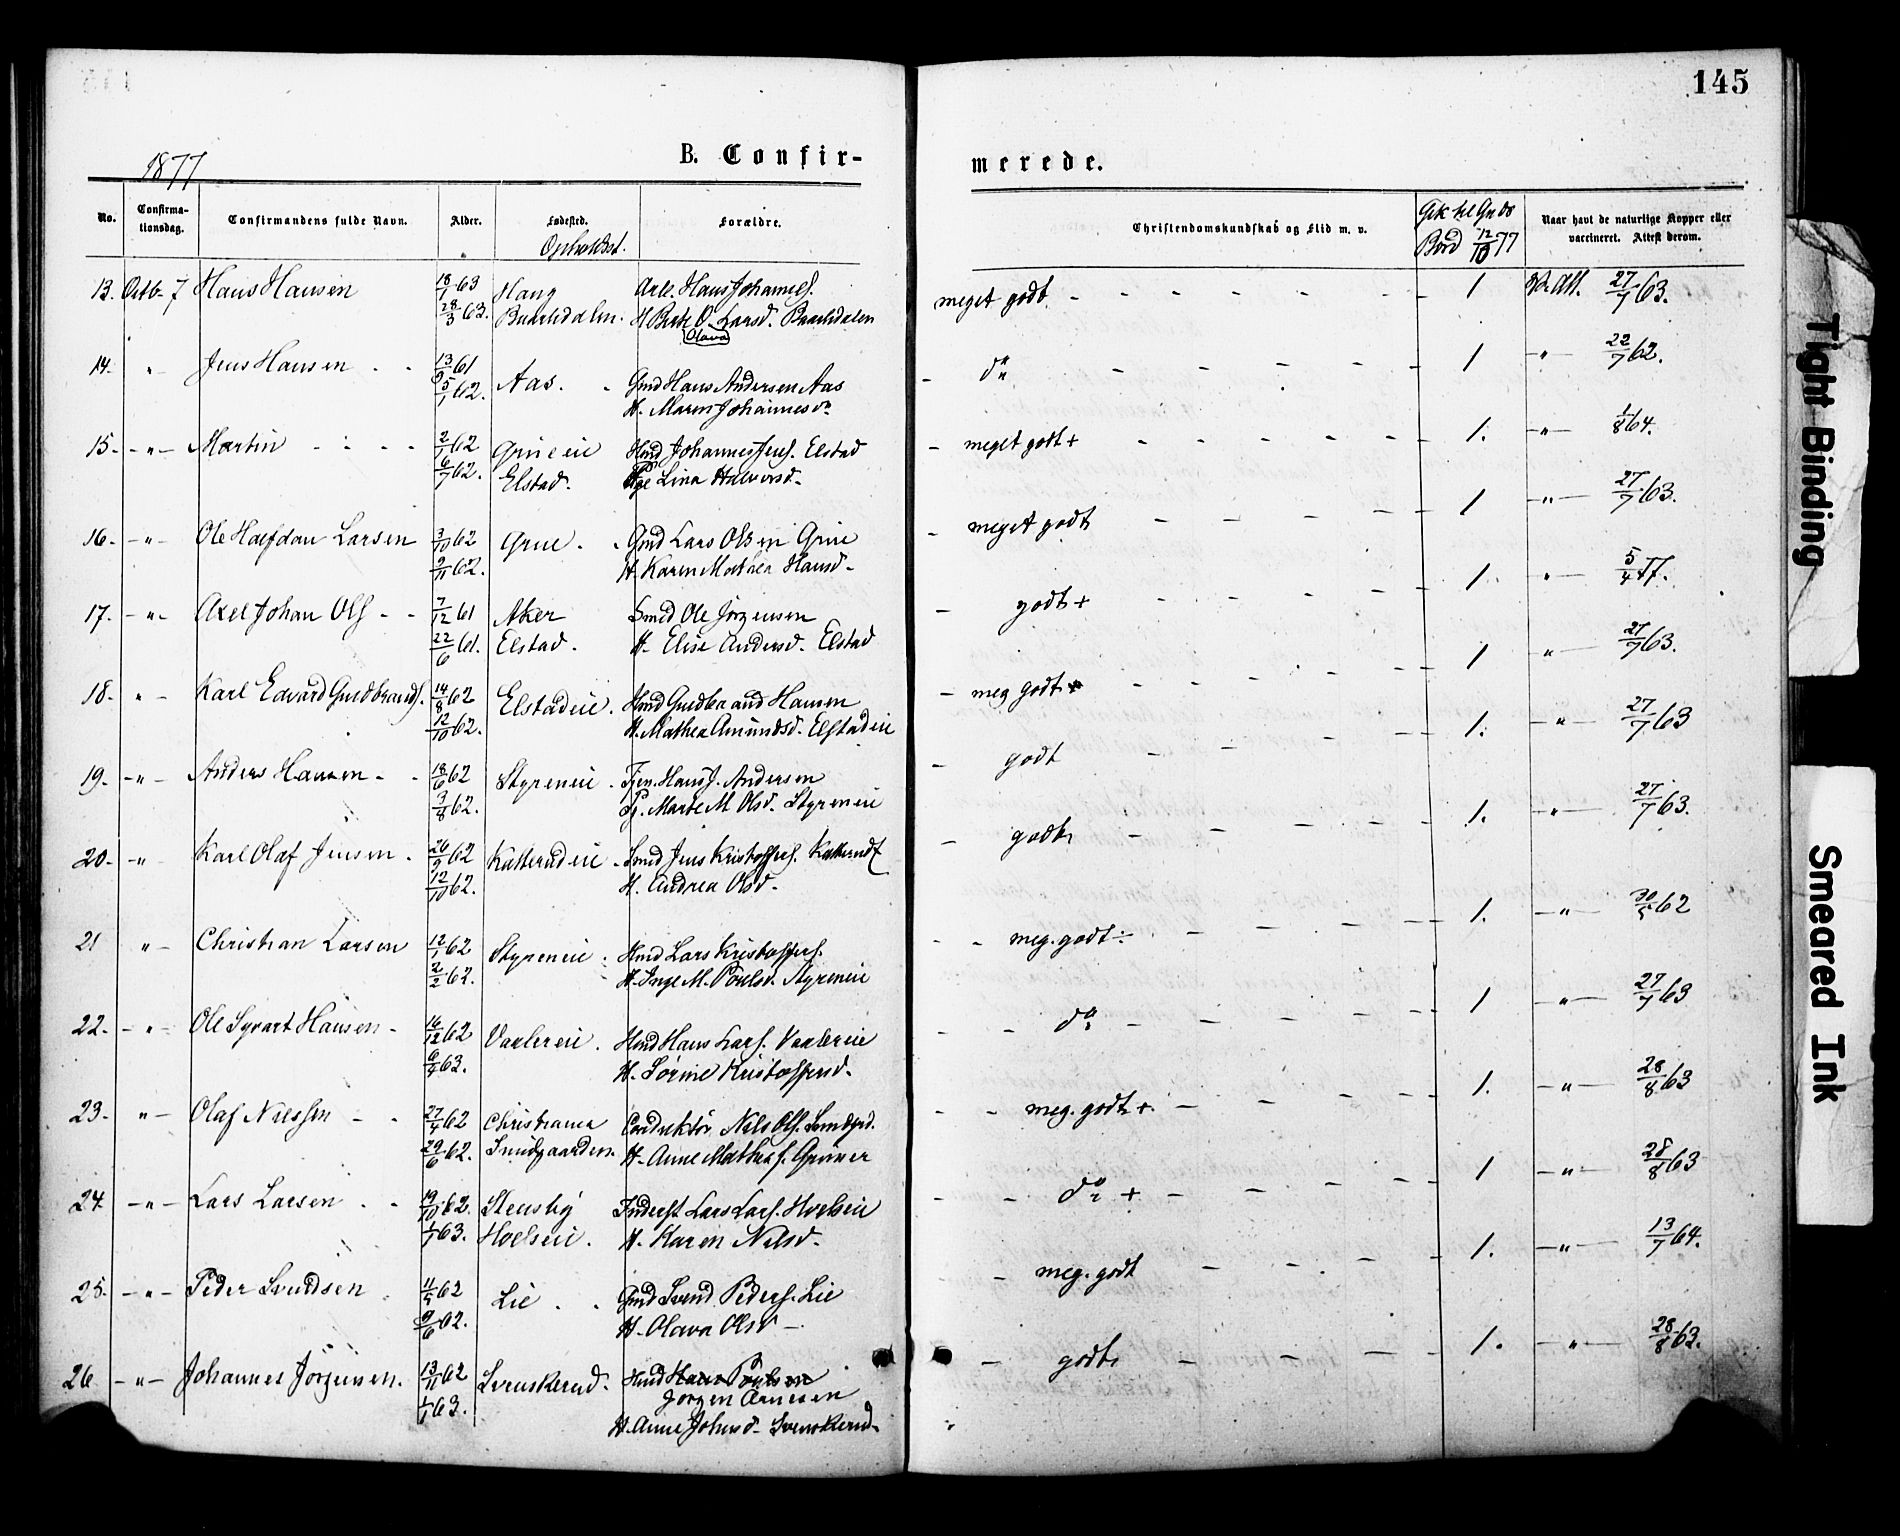 145
1877
B. Confir-
merede.
No. Confirma-tionsdag. Confirmandens fulde Navn. Alder. Fødested. Opholdsst. Forældre. Christendomskundskab og Flid m. v. Gik til Guds Bord 12/10 77 Naar havt de naturlige Kopper eller vaccineret. Attest derom.
13. Octb. 7 Hans Hansen 18/1 63 Haug Arb. Hans Johannes. meget godt. 1 27/7 63.
28/3 63. Baarlidalen. H. Birte O. Larsd. Baarlidalen
Olava
14. " Jens Hansen 13/9 61 Aas. Gmd Hans Andersen Aas do 1 " 22/7 62.
5/1 62. H. Maren Johannesdr
15. " Martin 2/1 62 Grueeie Hmd Johannes Jens. Elstad meget godt + 1. " 1/8 64.
6/7 62. Elstad. Pige Lina Halvorsd.
16. " Ole Halfdan Larsen 3/10 62 Grue. Gmd Lars Olsen Grue meget godt 1 " 27/7 63.
9/11 62. H. Karen Mathea Hansd.
17. " Axel Johan Ols. 7/12 61 Aker Smed Ole Jørgensen godt + 1. " 5/4 77.
22/6 61. Elstad. H. Elise Andersd. Elstad
18. " Karl Edvard Guldbrands. 14/8 62 Elstadeie. Hmd Guldbrand Hansen meg godt + 1 " 27/7 63.
12/10 62. H. Mathea Amundsd. Elstadeie
19. " Anders Hansen 18/6 62 Styreneie. Tjen. Hans J. Andersen godt 1. " 27/7 63
3/8 62. Pg. Marte M Olsd. Styreneie
20. " Karl Olaf Jensen. 26/9 62 Katterudeie. Smed Jens Kristoffers. godt 1. " 27/7 63.
12/10 62. H. Andrea Olsd.
21 " Christian Larsen 12/1 62 Styreneie. Hmd Lars Kristoffers. meg. godt ÷ 1. " 30/5 62
2/2 62. H. Inge M. Poulsd. Styreneie
22. " Ole Syvart Hansen 16/12 62 Varlereie. Hmd Hans Lars. Varlereie do 1 " 27/7 63
6/4 63. H. Sørine Kristoffersd.
23. " Olaf Nilssen 27/4 62 Christiania Conduktør Nils Ols. meg. godt + 1. " 28/8 63
29/6 62. H. Anne Mathea
24. " Lars Larsen 19/10 62. Stensby Inderst Lars Lars. Hoelseie do + 1 " 28/8 63
1/1 63. Hoelseie. H. Karen Nilsd.
25. " Peder Svendsen 11/5 62 Lie Gmd Svend Peders. Lie meg. godt 1. " 13/7 64.
9/6 62. H. Olava Olsd
26 " Johannes Jørgensen. 13/11 62 Svenskerud. Hmd Hans Poulsen godt 1. " 28/8 63.
1/1 63. Jørgen Arnesen
H. Anne Johnsd. Svenskerud
Tight Binding
Smeared Ink